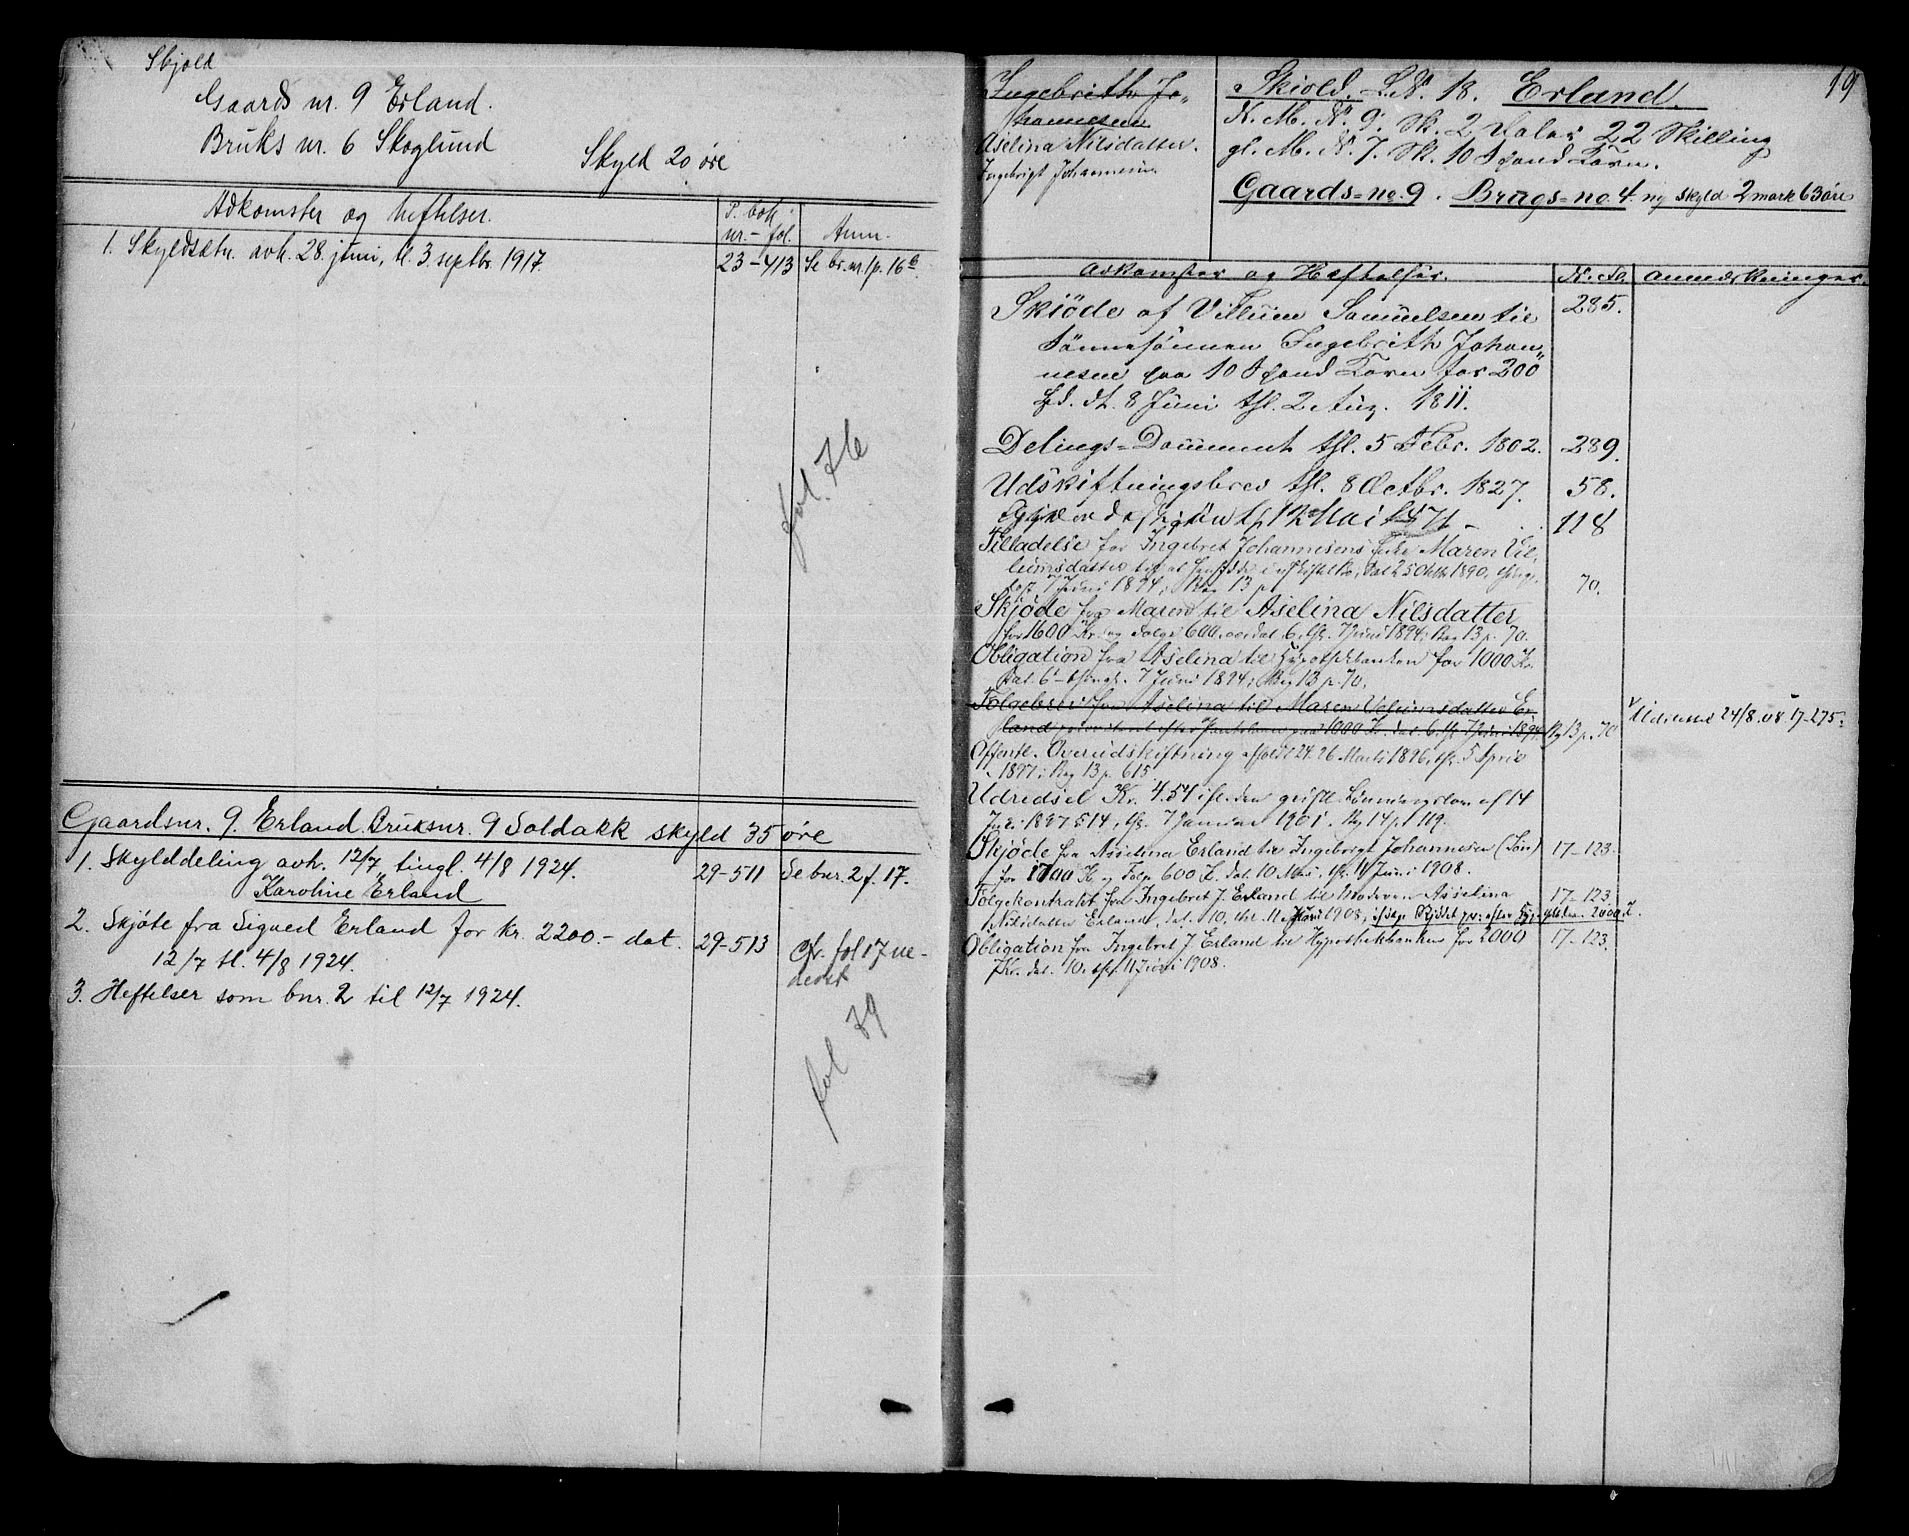 Skjold
Gaards nr. 9 Erland.
Bruks nr. 6 Skoglund
Skyld 20 øre
Adkomster og Heftelser.
P. bok nr. - fol.
Anm.
1. Skyldsætn. avh. 28. juni, tl. 3. septbr. 1917
23-413
Se br.nr. 1 p. 16b
fol. 76
Gaardsnr. 9. Erland. Bruksnr. 9 Soldakk skyld 35 øre
1. Skylddeling avh. 12/7 tingl. 4/8 1924.
29-511
Se bnr. 2 f. 17.
Karoline Erland
2. Skjøte fra Sigved Erland for kr. 2200.- dat.
12/7 tl. 4/8 1924.
29-513
Cfr. fol 17 ne-
derst
3. Heftelser som bnr. 2 til 12/7 1924.
fol 79
19
Ingebrith Jo-
hannesen
Aselina Nilsdatter.
Ingebrigt Johannesen
Skiold. L.N. 18. Erland.
N. M. N. 9. Sk. 2 Daler 22 Skilling
gl. M. N. 7. Sk. 10 Spand Korn.
Gaards-no. 9. Brugs-no. 4. ny skyld 2 mark 63 øre
Adkomster og Hæftelser.
N. Fo.
Anmærkninger.
Skiøde af Villum Samuelsen til
Sønnesønnen Ingebrith Johan-
nesen paa 10 Spand Korn for 200
Rd. dt. 8 Juni thl. 2 Aug. 1811.
285.
Delings-Document thl. 5 Febr. 1802.
289.
Udskiftningsbrev thl. 8 Octbr. 1827.
58.
12 Mai
118
Tilladelse for Ingebret Johannesens Enke Maren Vil-
lumsdatter til at dat 25 Oktb 1890,
7 Juni 1894; Reg 13 p
70.
Skjøde fra Maren til Aselina Nilsdatter
for 1600 Kr. og Folge 600. dat. 6. thl. 7 Juni 1894; Reg 13 p. 70.
Obligation fra Aselina til Hypothekbanken for 1000 Kr.
dat. 6 thingl. 7 Juni 1894; Reg 13 p. 70.
Folgebrev fra Aselina til Maren Velumsdatter Er-
land 1000 Kr. dat 6. thl. 7 Juni 1894.
Rg 13 p. 70
Udr. 24/8.08.17-275.
Offentl. Overudskiftning afholdt 24. 26 Marts 1896, thl. 5 April
1897; Reg 13 p. 615.
Udredsel Kr. 4.54 ifl. den geistl. Lønningslov af 14
Juli 1897 § 14, thl. 7 Januar 1901. Rg 14 p 119.
Skjøde fra Asselina Erland til Ingebrigt Johannesen (Søn)
for 1700 Kr. og Folge 600 K. dat. 10 Mai, thl. 11 Juni 1908.
17-123.
Folgekontrakt fra Ingebret J. Erland til Moderen Asselina
Nilsdatter Erland, dat. 10, thl. 11 Juni 1908, 2000 K.
17-123
Obligation fra Ingebret J. Erland til Hypothekbanken for 2000
Kr. dat. 10. thl. 11 Juni 1908.
17-123.